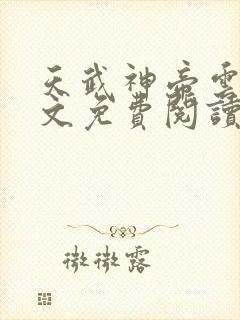 天武神帝雲
文免費閱讀
微微露